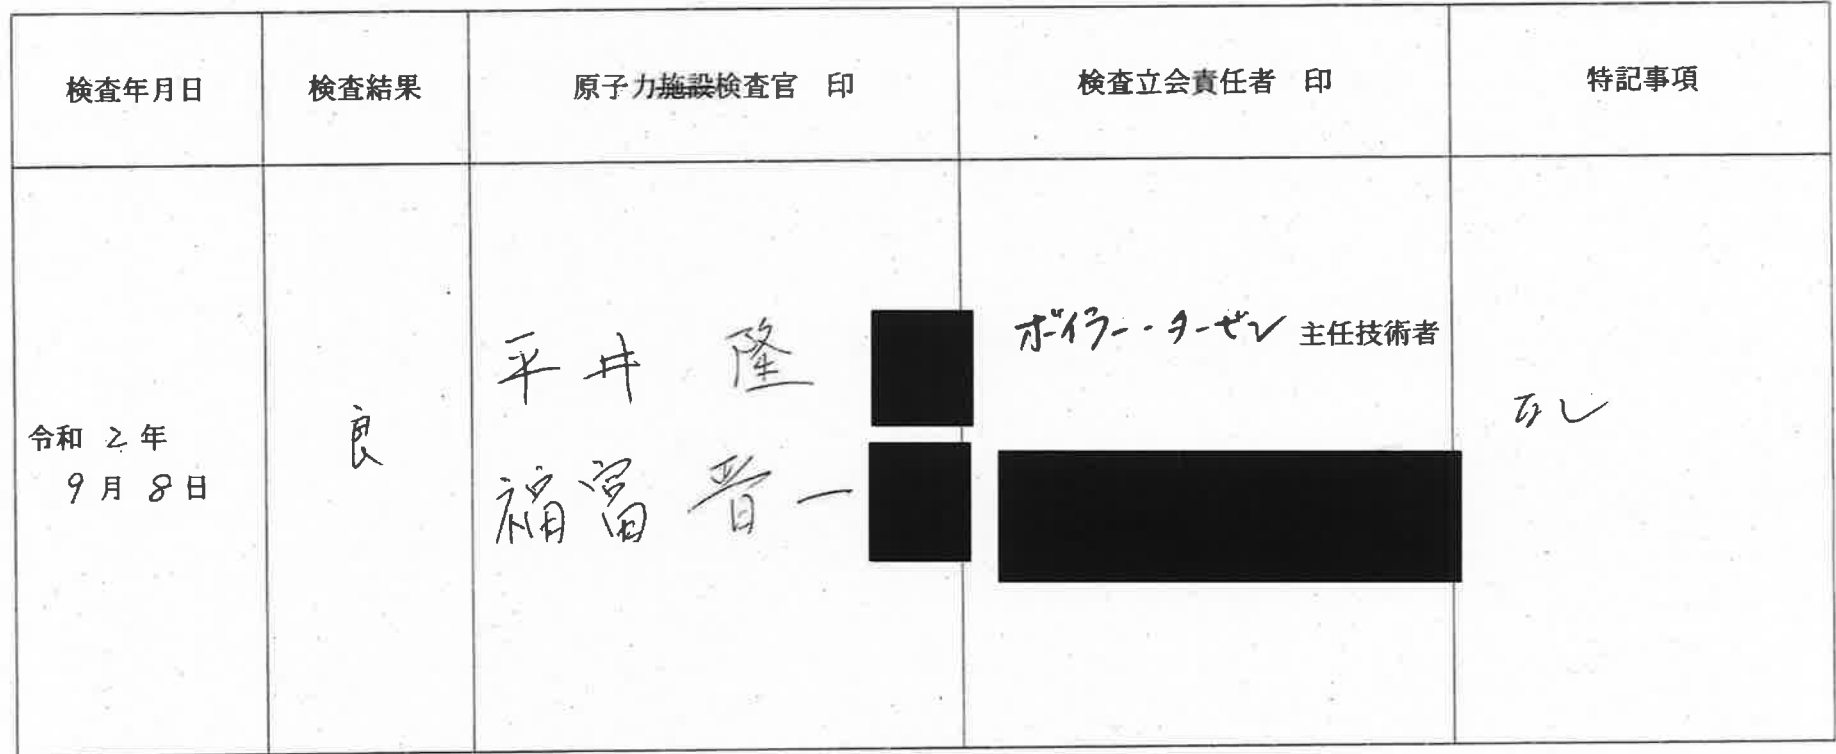 検査年月日
検査結果
原子力施設検査官 印
検査立会責任者 印
特記事項
令和 2 年
9 月 8 日
良
平井 隆
福富 晋一
ボイラー・タービン 主任技術者
なし